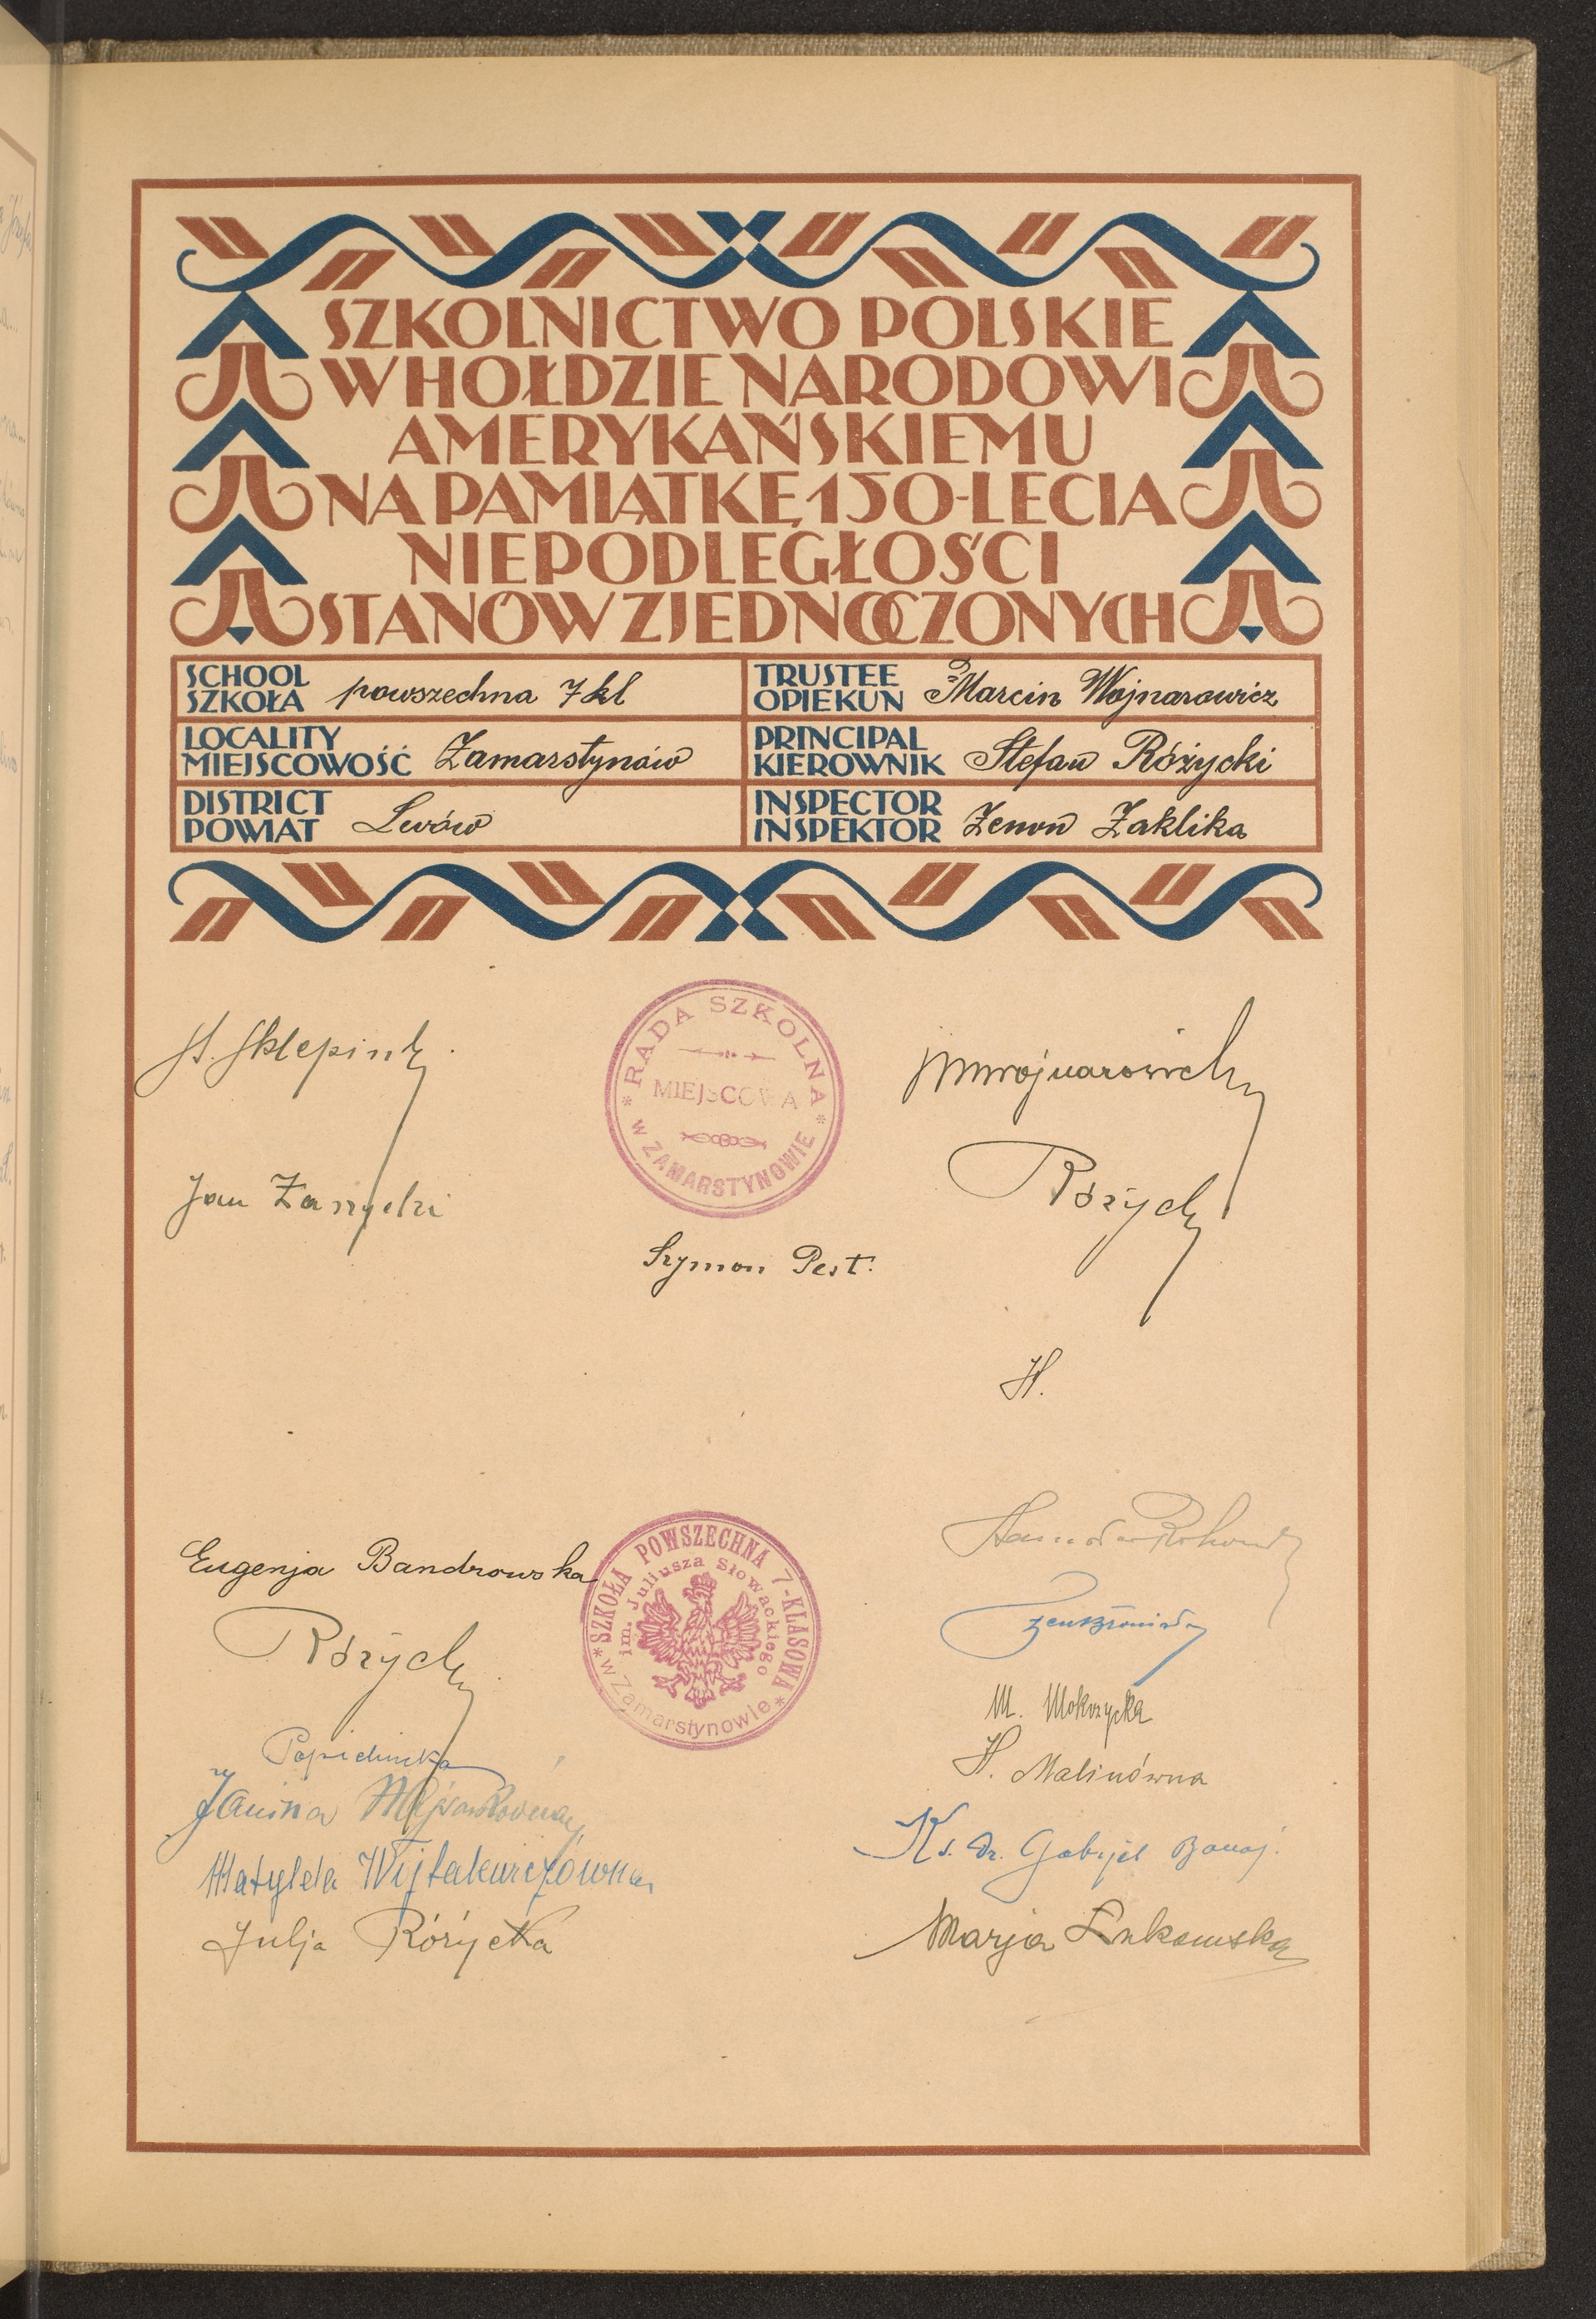 SZKOLNICTWO POLSKIE
W HOŁDZIE NARODOWI
AMERYKAŃSKIEMU
NA PAMIĄTKĘ 150-LECIA
NIEPODLEGŁOŚCI
STANÓW ZJEDNOCZONYCH
SCHOOL
SZKOŁA powszechna 7 kl
TRUSTEE
OPIEKUN Marcin Wojnarowicz
LOCALITY
MIEJSCOWOŚĆ Zamarstynów
PRINCIPAL
KIEROWNIK Stefan Różycki
DISTRICT
POWIAT Lwów
INSPECTOR
INSPEKTOR Zenon Zaklika
RADA SZKOLNA
MIEJSCOWA
w ZAMARSTYNOWIE
Różycki
Jan Zarzycki
Szymon Pest.
H.
Eugenja Bandrowska
SZKOŁA POWSZECHNA 7-KLASOWA
im. Juliusza Słowackiego
w Zamarstynowie
Różycki
M. Mokrzycka
H. Malinówna
Janina
Ks. Dr. Gabrjel
Matylda
Julja Różycka
Marja Łukomska